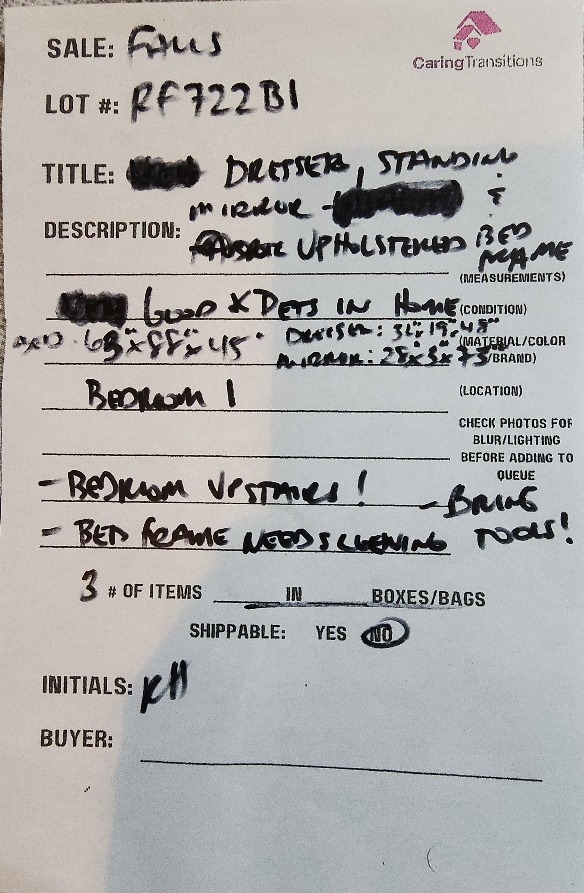 SALE: FALLS
CaringTransitions
LOT #: RF722B1
TITLE: DRESSER, STANDING
MIRROR - &
DESCRIPTION: UPHOLSTERED BED FRAME
(MEASUREMENTS)
GOOD * PETS IN HOME (CONDITION)
BED: 63"x88"x45" DRESSER: 31"19"48" (MATERIAL/COLOR
MIRROR: 28x3x75" /BRAND)
BEDROOM 1 (LOCATION)
CHECK PHOTOS FOR
BLUR/LIGHTING
BEFORE ADDING TO
QUEUE
- BEDROOM UPSTAIRS! - BRING
- BED FRAME NEEDS CLEANING TOOLS!
3 # OF ITEMS IN BOXES/BAGS
SHIPPABLE: YES NO
INITIALS: KH
BUYER: